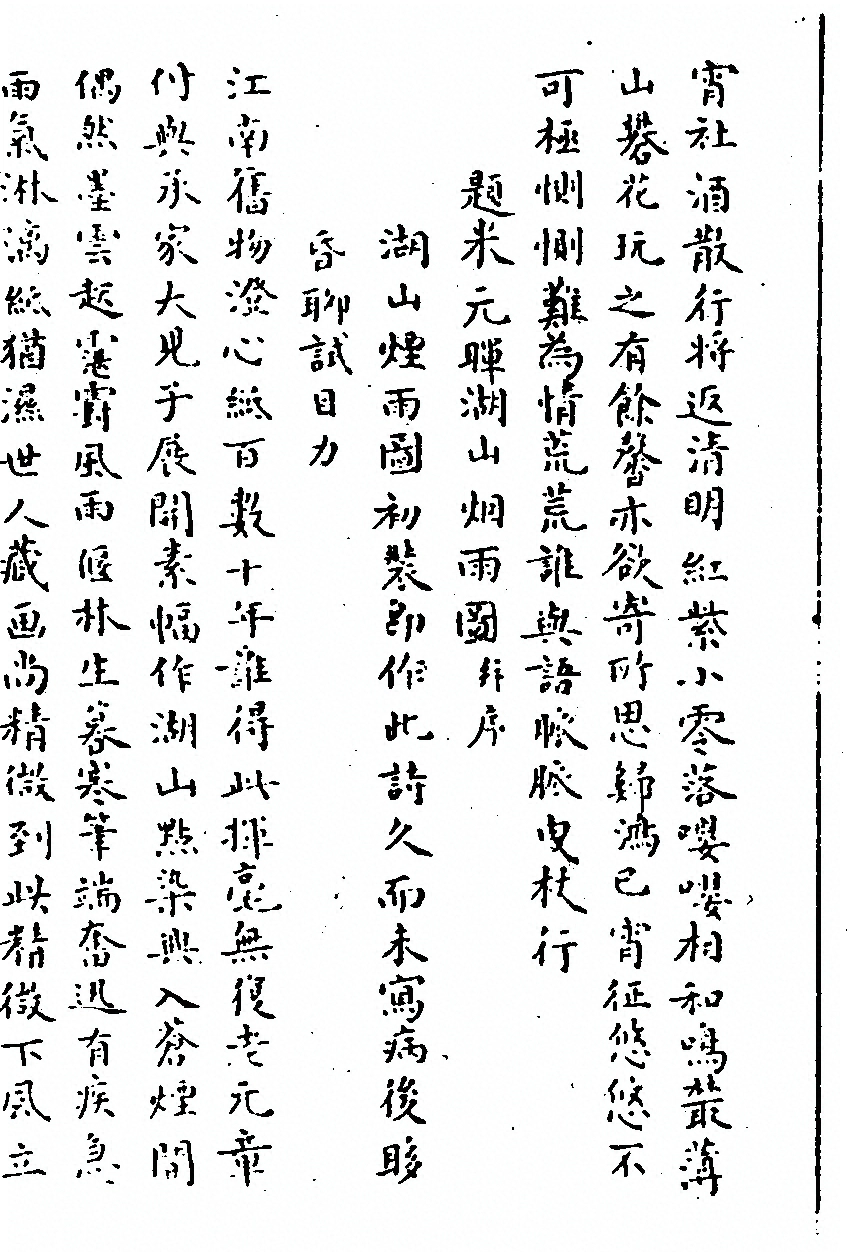 宵社酒散行将返清明紅紫小零落嚶嚶相和鳴叢薄
山礬花玩之有餘馨亦欲寄所思歸鴻已宵征悠悠不
可極惻惻難為情荒荒誰與語脈脈曳杖行
題米元暉湖山烟雨圖并序
湖山煙雨圖初裝即作此詩久而未寫病後眵
昏聊試目力
江南舊物澄心紙百數十年誰得此揮毫無復老元章
付與承家大兒子展開素幅作湖山點染興入蒼煙間
偶然墨雲起霮䨴風雨偃林生暮寒筆端奮迅有疾急
雨氣淋漓紙猶濕世人藏画尚精微到此精微下風立